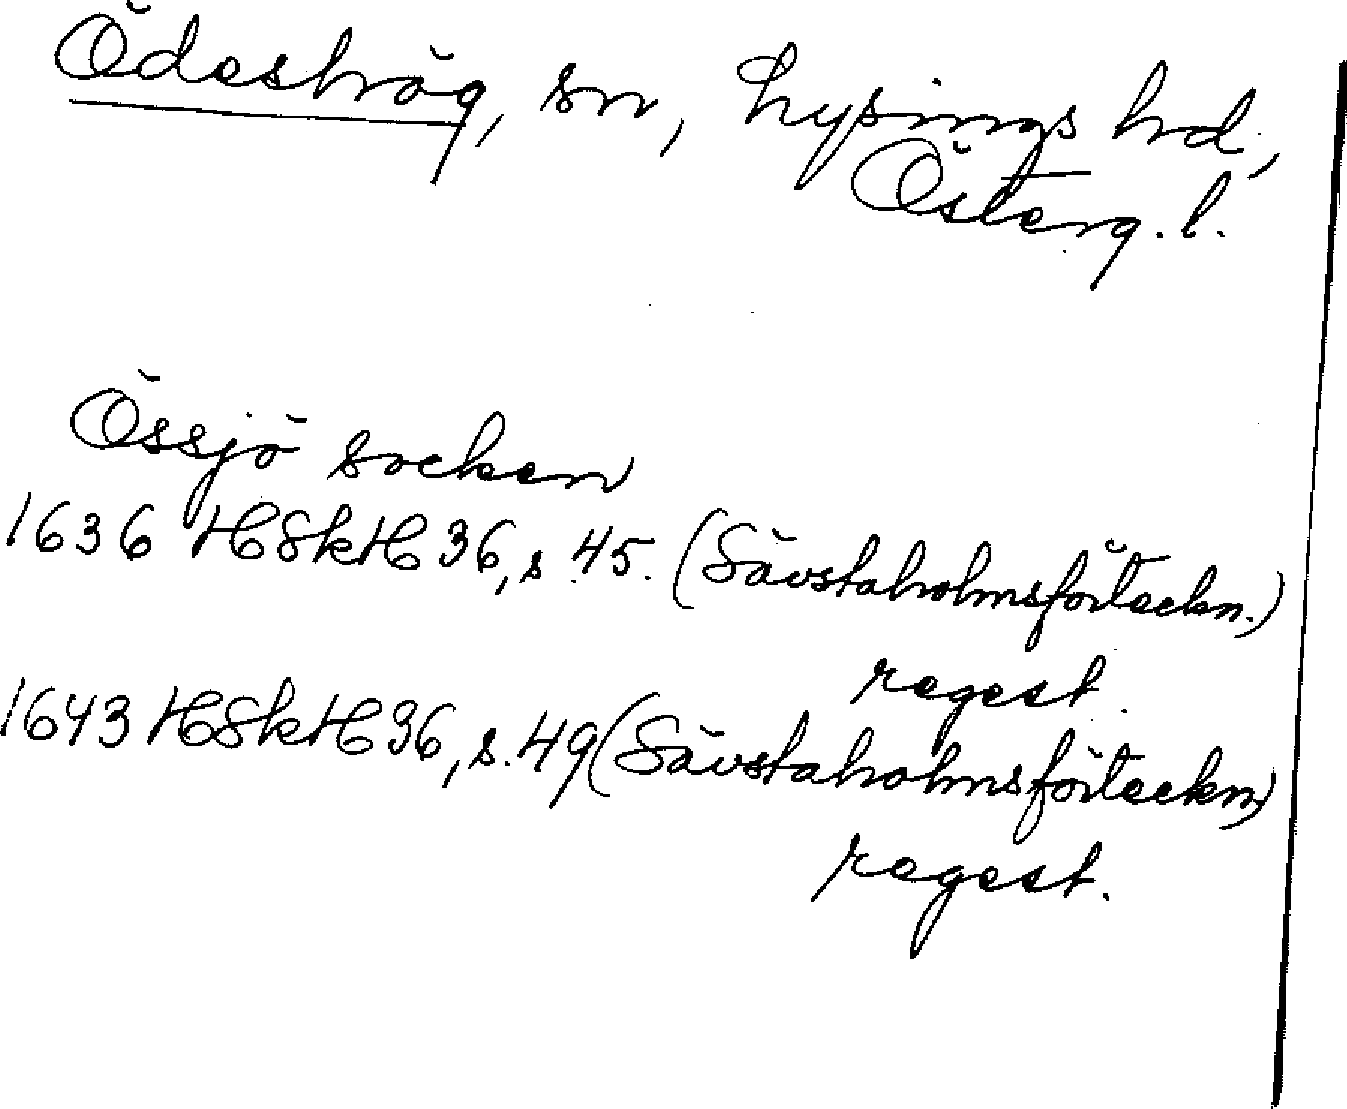 Ödeshög, sn, Lysings hd,
Österg. l.
Össjö socken
1636 HSkH 36, s 45. (Sävstaholmsförteckn.)
regest.
1643 HSkH 36, s. 49 (Sävstaholmsförteckn.)
regest.